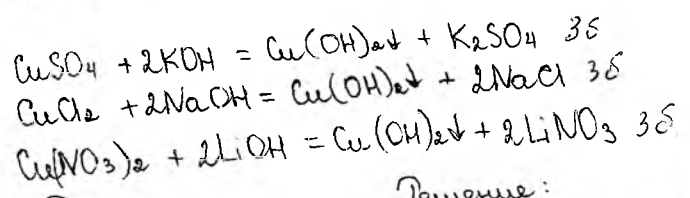 CuSO4 + 2KOH = Cu(OH)2↓ + K2SO4 3б
CuCl2 + 2NaOH = Cu(OH)2↓ + 2NaCl 3б
Cu(NO3)2 + 2LiOH = Cu(OH)2↓ + 2LiNO3 3б
Решение: